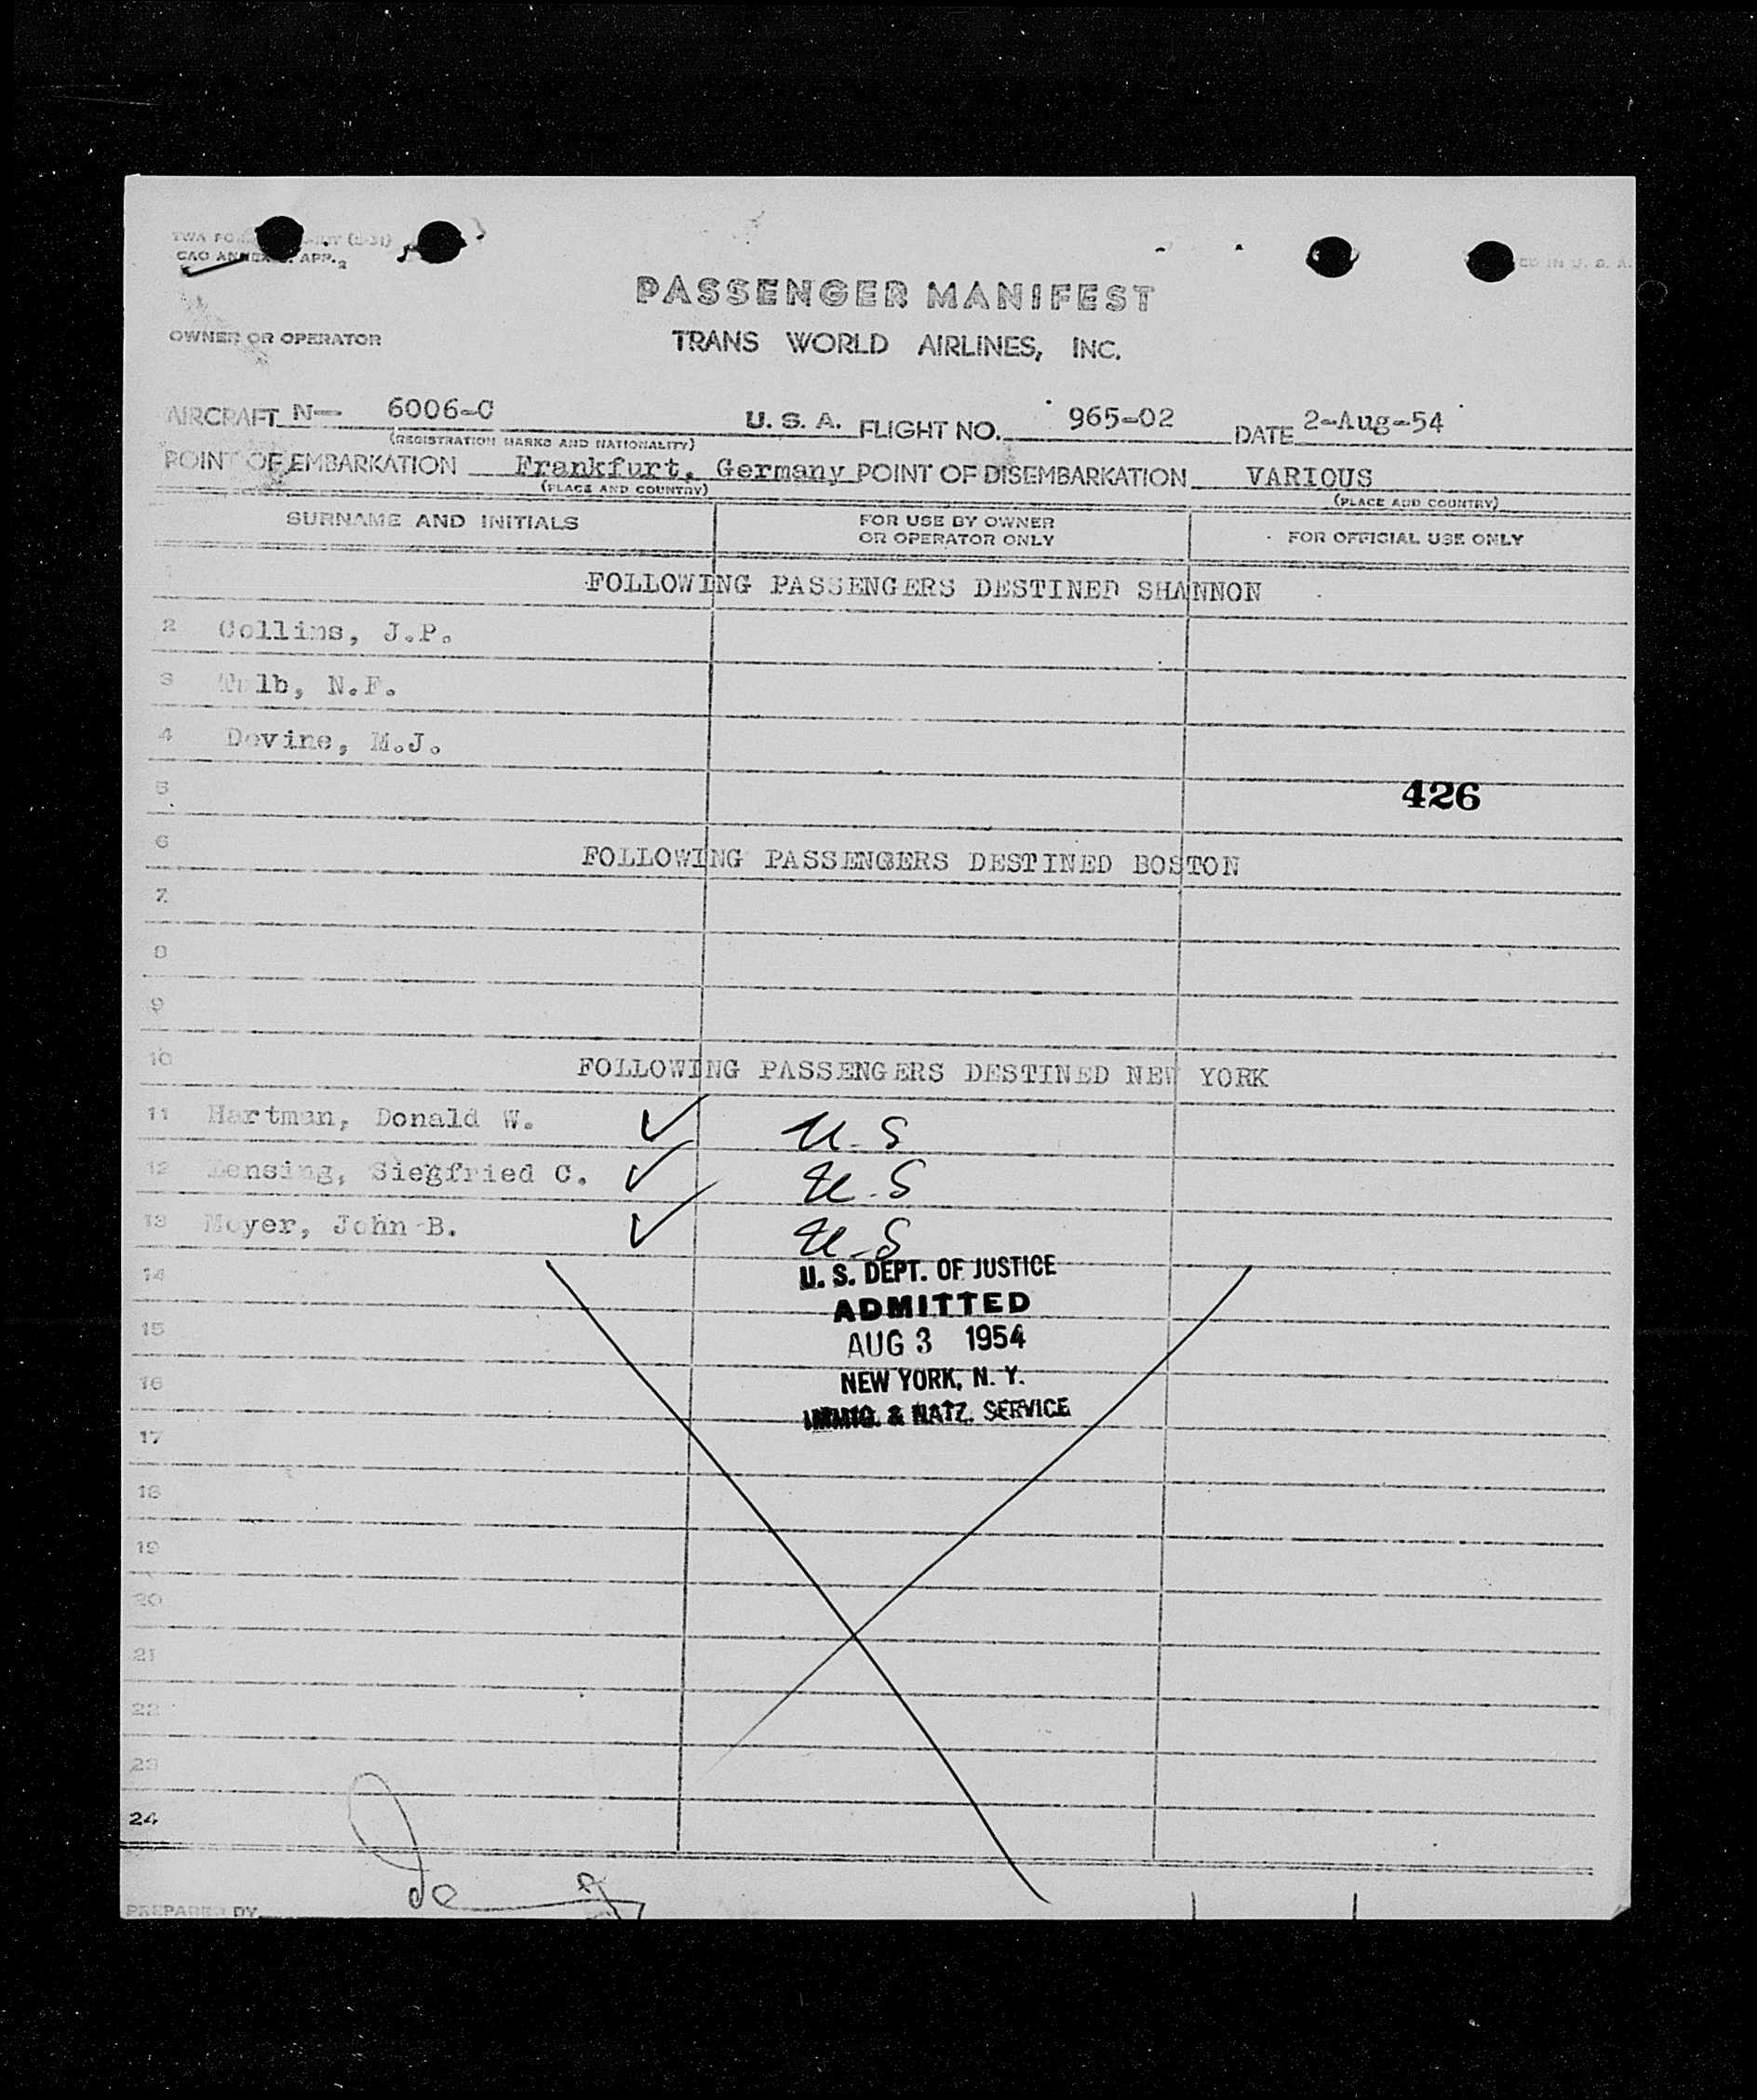 TWA FO
CAO ANNEX 9. APP. 2
PASSENGER MANIFEST
OWNER OR OPERATOR
TRANS WORLD AIRLINES, INC.
AIRCRAFT N— 6006-C U. S. A. FLIGHT NO. 965-02 DATE 2-Aug-54
(REGISTRATION MARKS AND NATIONALITY)
POINT OF EMBARKATION Frankfurt, Germany POINT OF DISEMBARKATION VARIOUS
(PLACE AND COUNTRY) (PLACE AND COUNTRY)
SURNAME AND INITIALS FOR USE BY OWNER OR OPERATOR ONLY FOR OFFICIAL USE ONLY
1 FOLLOWING PASSENGERS DESTINED SHANNON
2 Collins, J.P.
3 N.F.
4 Devine, M.J.
5 426
6 FOLLOWING PASSENGERS DESTINED BOSTON
7
8
9
10 FOLLOWING PASSENGERS DESTINED NEW YORK
11 Hartman, Donald W. ✓ U.S
12 Lensing, Siegfried C. ✓ U.S
13 Moyer, John B. ✓ U.S
14 U. S. DEPT. OF JUSTICE
ADMITTED
15 AUG 3 1954
16 NEW YORK, N. Y.
IMMIG. & NATZ. SERVICE
17
18
19
20
21
22
23
24
PREPARED BY